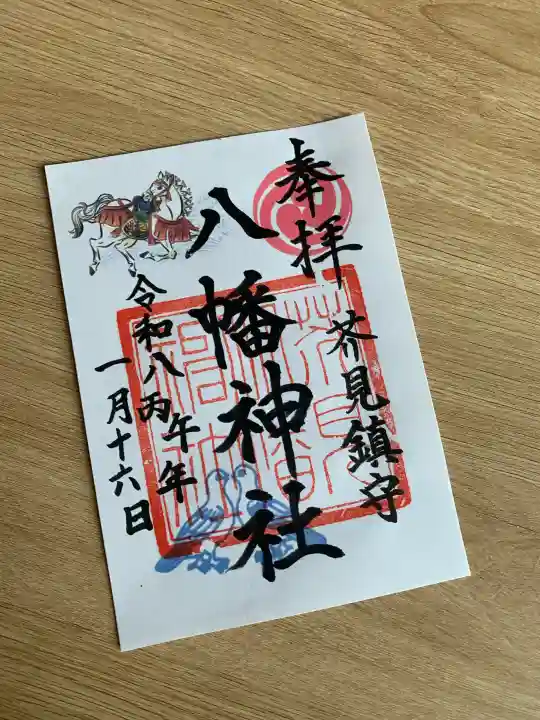 奉拝
芥見鎮守
八幡神社
令和八丙午年
一月十六日